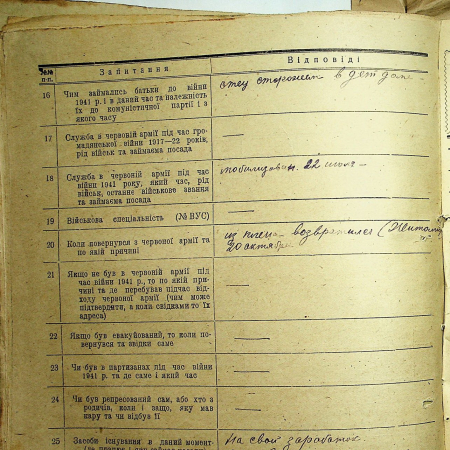 №№ п-п.
Запитання
Відповіді
16
Чим займались батьки до війни
1941 р. і в даний час та належність
їх до комуністичної партії і з
якого часу
отец сторожем в дет доме
17
Служба в червоній армії під час гро-
мадянської війни 1917—22 років,
рід військ та займаєма посада
—
18
Служба в червоній армії під час
війни 1941 року, який час, рід
військ, останнє військове звання
та займаєма посада
мобилизован 22 июня —
19
Військова спеціальність (№ ВУС)
—
20
Коли повернувся з червоної армії та
по якій причині
из плена возвратился (Житомир
20 октября
21
Якщо не був в червоній армії під
час війни 1941 р., то по якій при-
чині та де перебував підчас від-
ходу червоної армії (чим може
підтвердити, а коли свідками то їх
адреса)
—
22
Якщо був евакуйований, то коли по-
вернувся та звідки саме
—
23
Чи був в партизанах під час війни
1941 р. та де саме і який час
—
24
Чи був репресований сам, або хто з
родичів, коли і защо, яку мав
кару та чи відбув її
—
25
Засоби існування в даний момент
На свой заработок